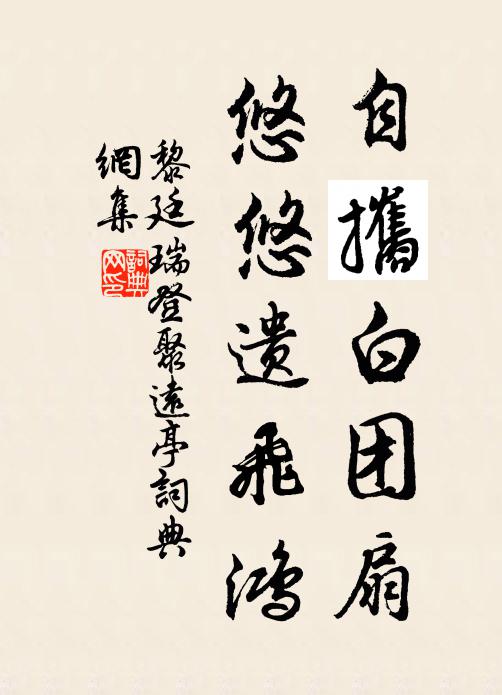 自攜白团扇
悠悠遗飛鸿
黎廷瑞登聚遠亭詞典
網集
詞典网印